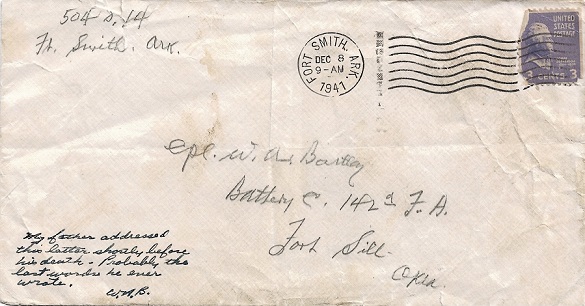 504 S. 14
Ft. Smith. Ark.
FORT SMITH, ARK.
DEC 8
9-AM
1941
UNITED
STATES
POSTAGE
3 CENTS 3
Cpl. W. A. Bartley
Battery C. 142d F. A.
Fort Sill
Okla.
My father addressed
this letter shortly before
his death - Probably the
last words he ever
wrote.
W.A.B.